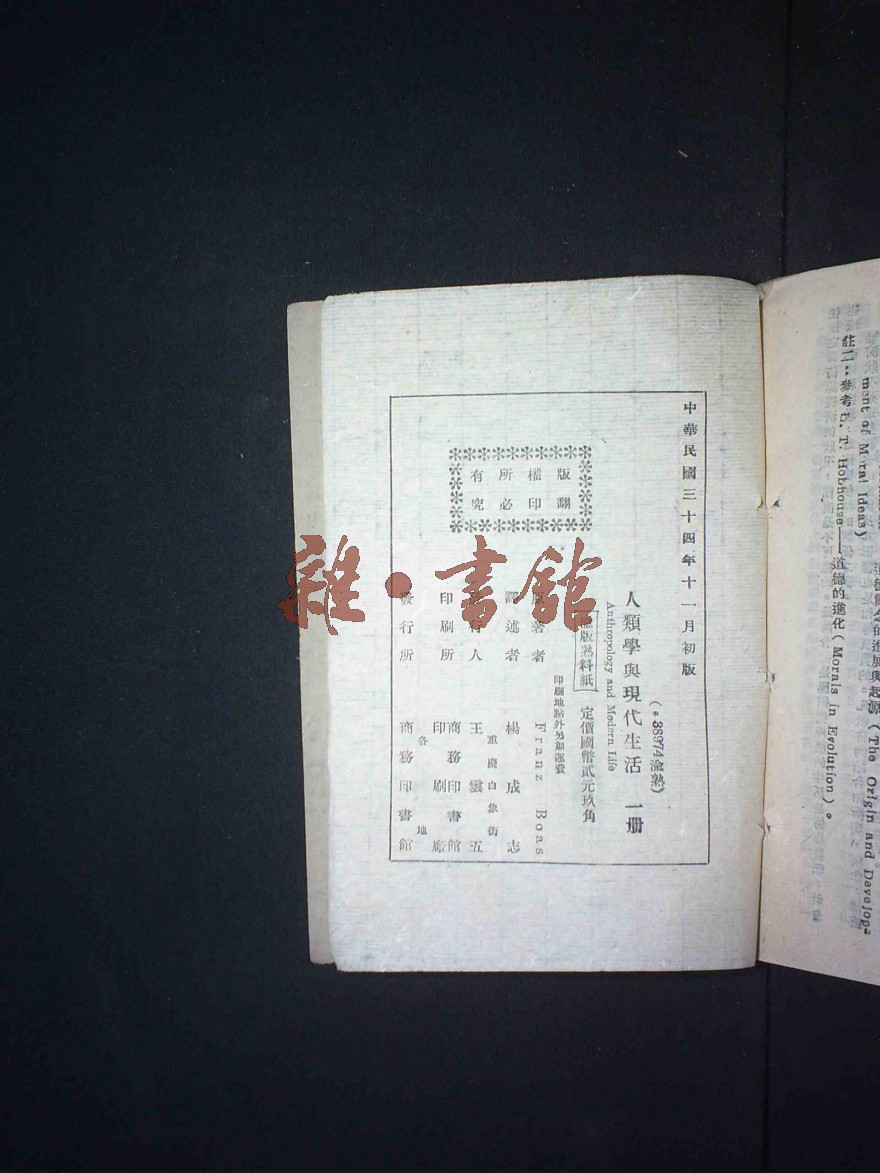 中華民國三十四年十一月初版
(*38974渝熟)
人類學與現代生活 一册
Anthropology and Modern Life
版熟料紙 定價國幣貳元玖角
印刷地點外另加運費
版權所有
翻印必究
著者 Franz Boas
譯述者 楊成志
行人 王雲五
重慶白象街
印刷所 商務印書館
印刷廠
發行所 商務印書館
各地
雜·書館
道德觀念的進展與起源 (The Origin and Develop-
ment of Moral Ideas)
註二:參考L. T. Hobhouse——道德的進化(Morals in Evolution)。